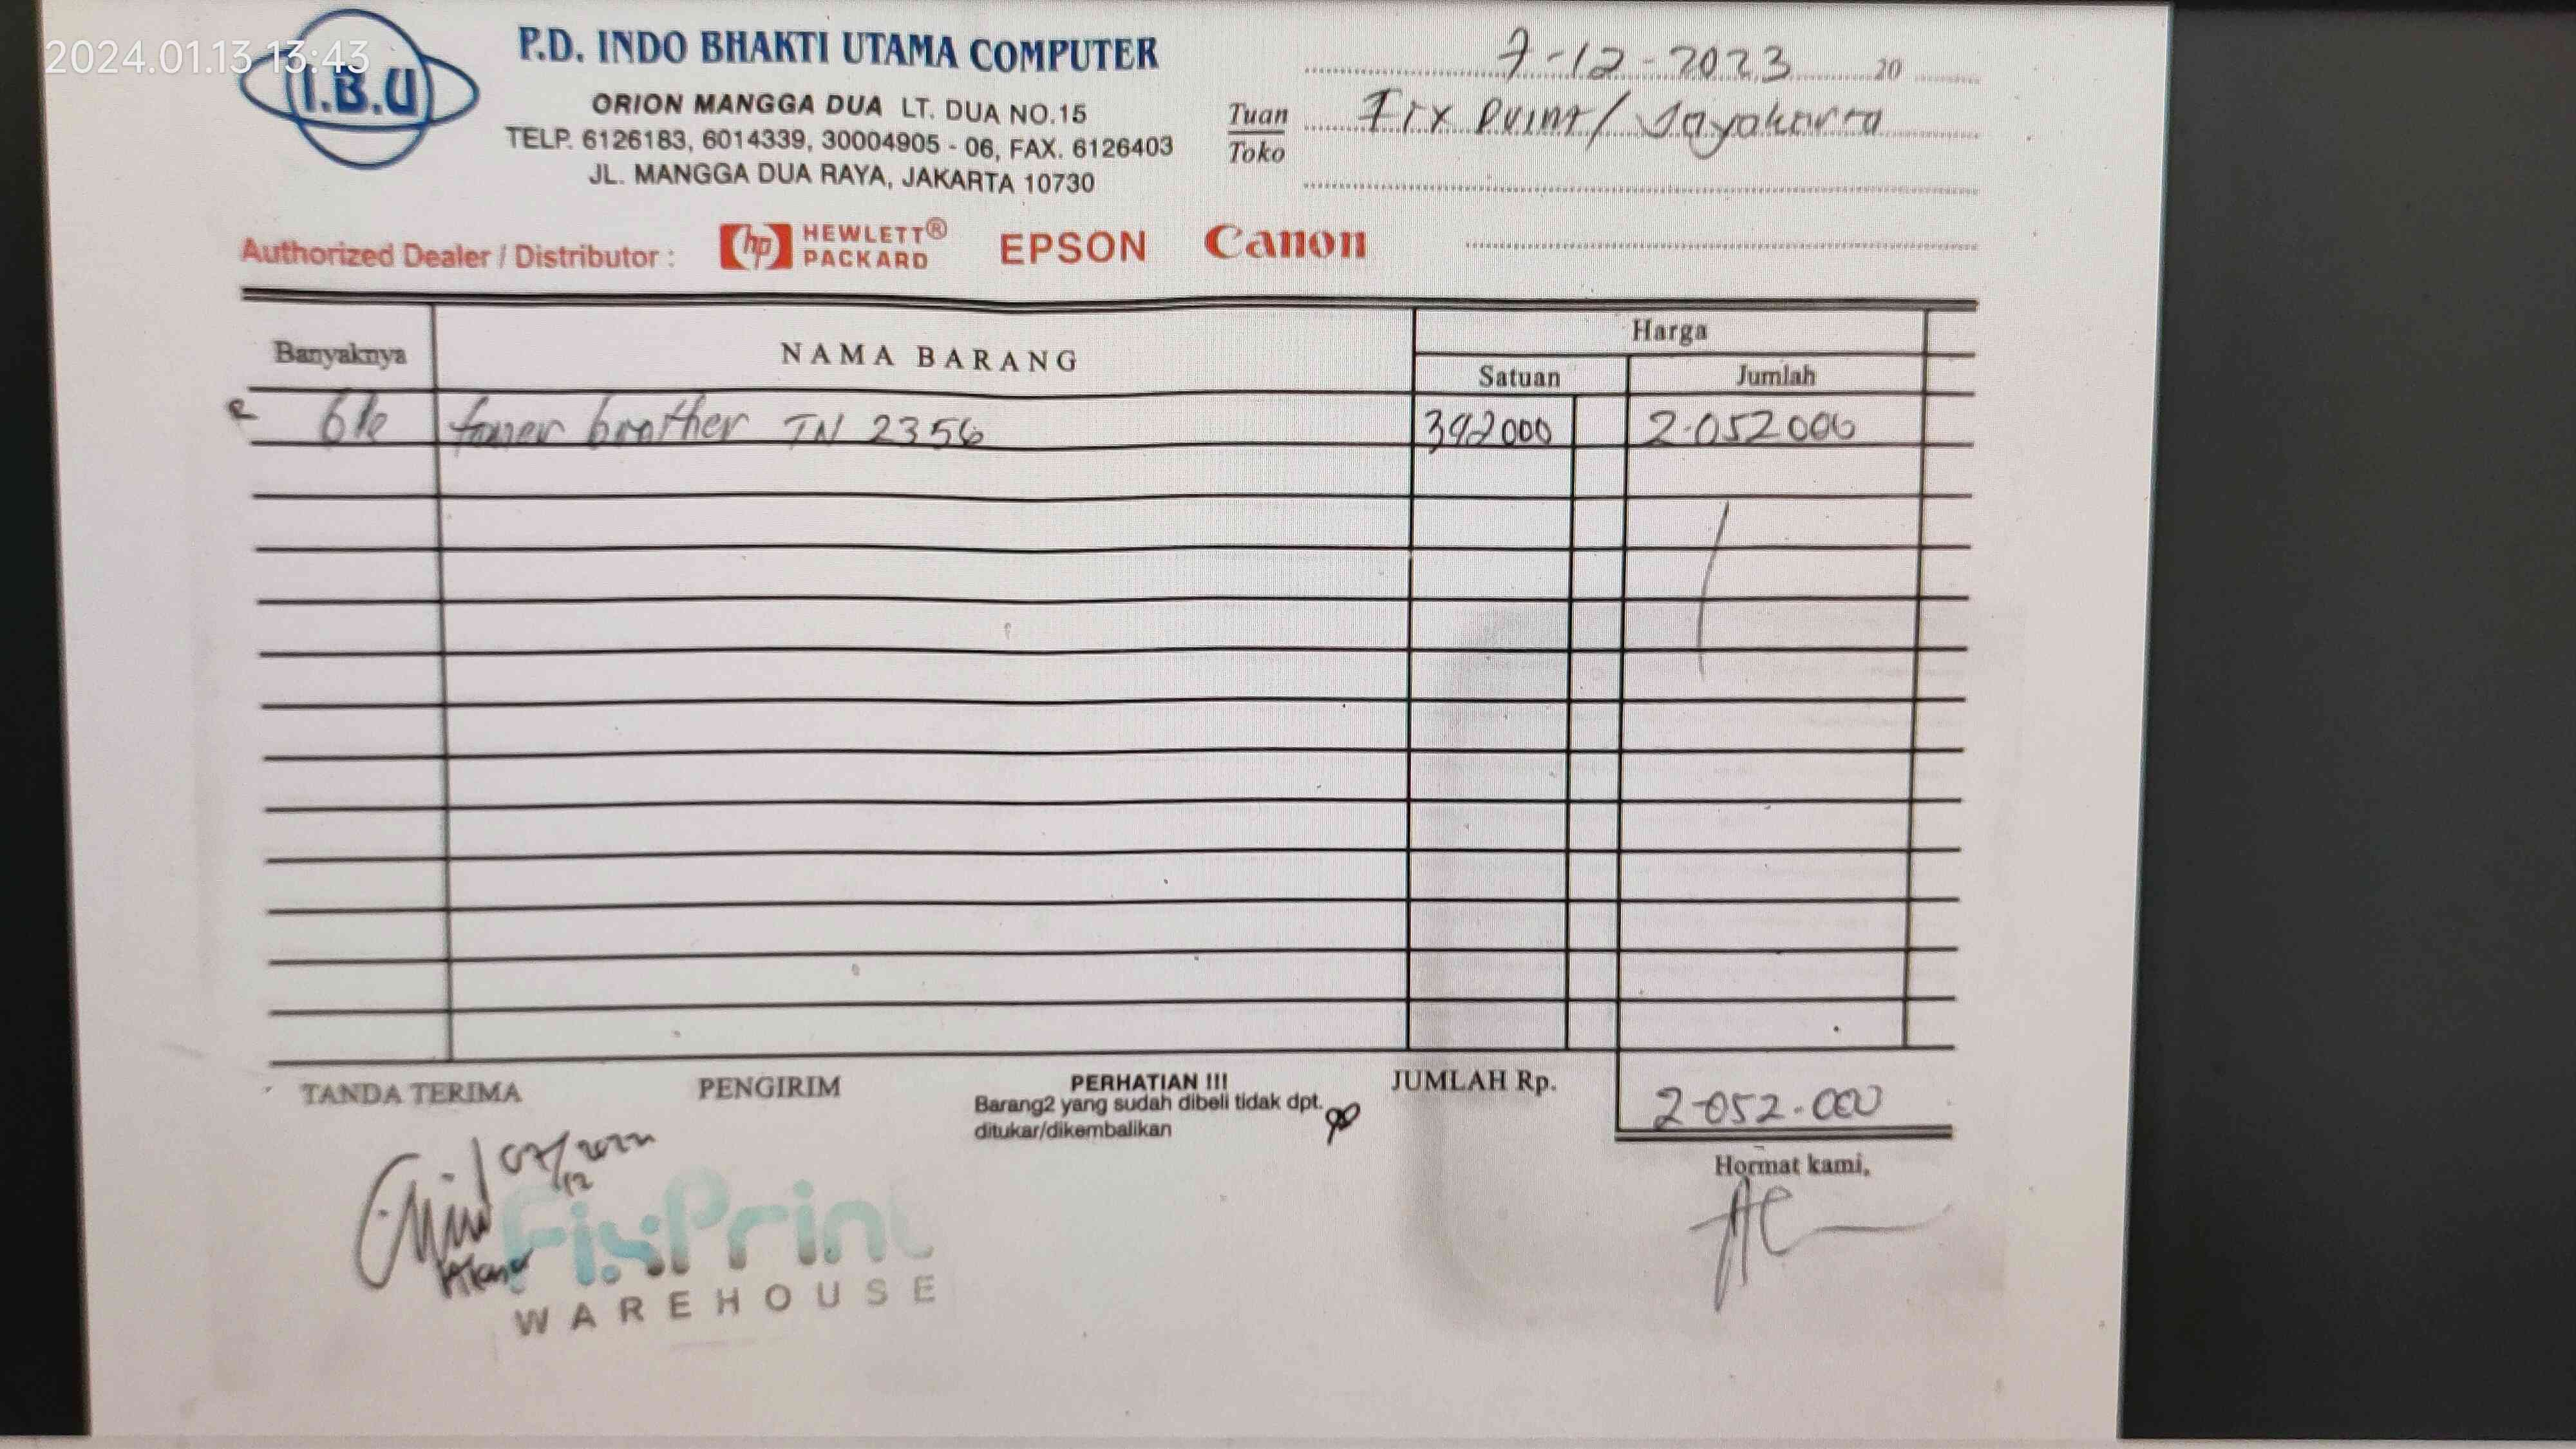 2024.01.13 13:43
I.B.U
P.D. INDO BHAKTI UTAMA COMPUTER
ORION MANGGA DUA LT. DUA NO.15
TELP. 6126183, 6014339, 30004905 - 06, FAX. 6126403
JL. MANGGA DUA RAYA, JAKARTA 10730
7-12-2023 20
Tuan
Toko
Fix Print/ Jayakarta
Authorized Dealer / Distributor : hp HEWLETT® PACKARD EPSON Canon
Banyaknya NAMA BARANG Harga
Satuan Jumlah
toner brother TN 2356 342000 2.052000
TANDA TERIMA PENGIRIM PERHATIAN !!! JUMLAH Rp. 2.052.000
Barang2 yang sudah dibeli tidak dpt.
ditukar/dikembalikan
Hormat kami,
FixPrint
WAREHOUSE